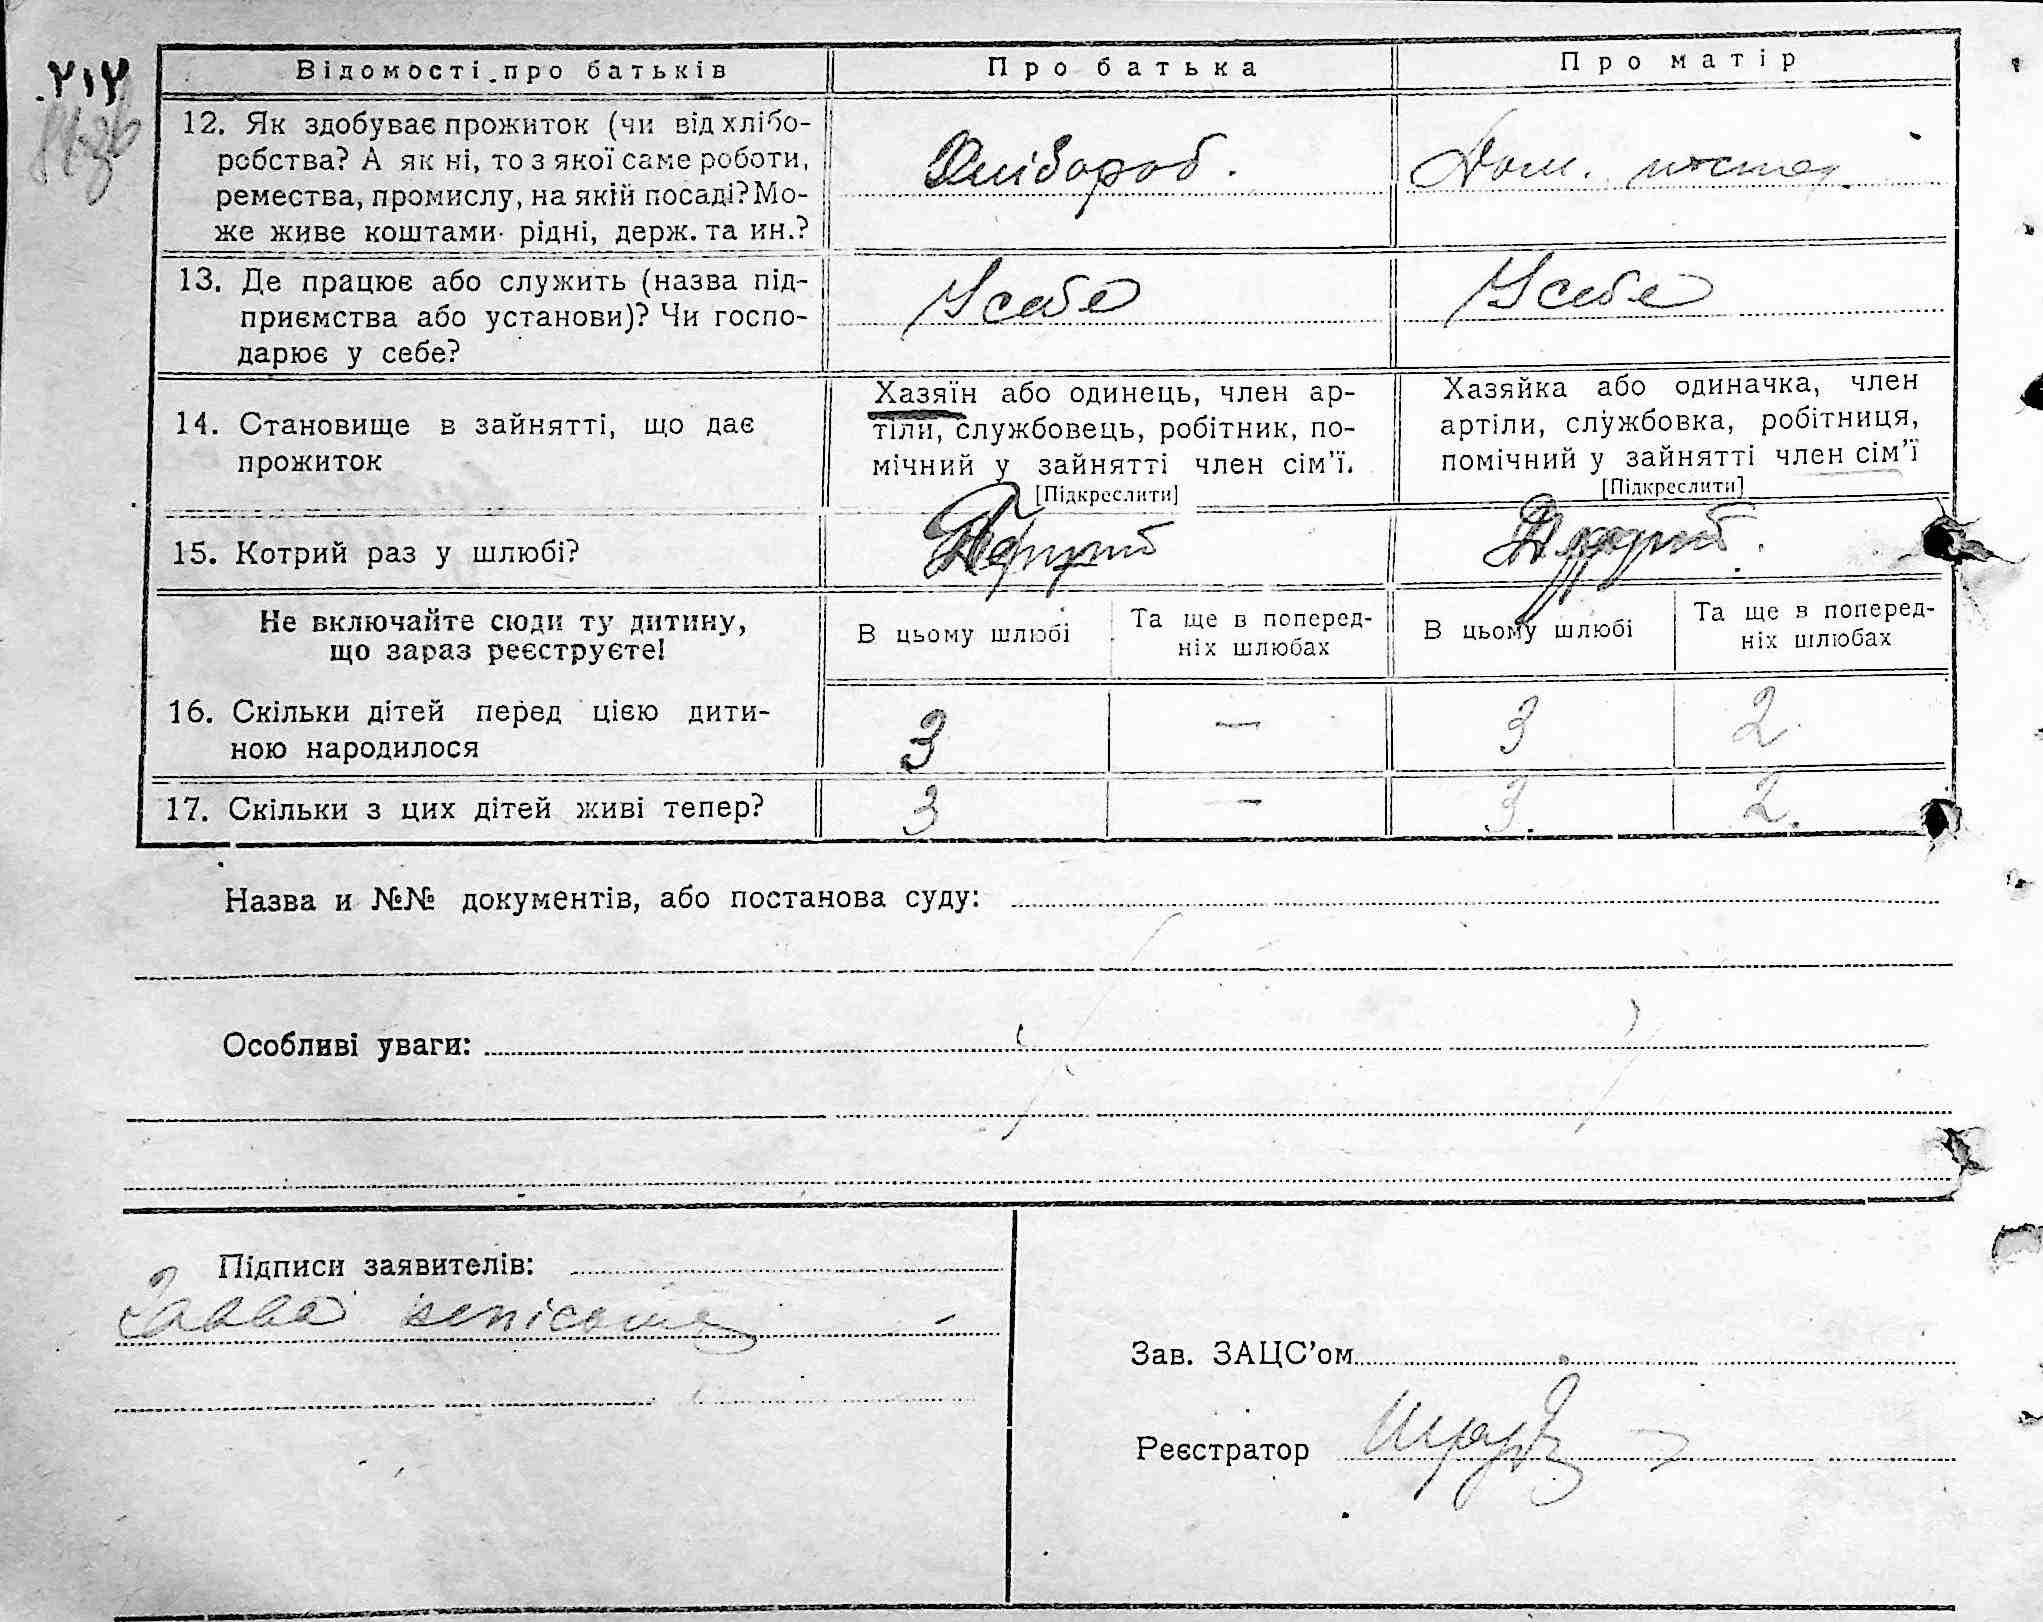 Відомості про батьків
Про батька
Про матір
12. Як здобуває прожиток (чи від хлібо-
робства? А як ні, то з якої саме роботи,
ремества, промислу, на якій посаді? Мо-
же живе коштами рідні, держ. та ин.?
Хлібороб.
Дом.
13. Де працює або служить (назва під-
приємства або установи)? Чи госпо-
дарює у себе?
У себе
У себе
14. Становище в зайнятті, що дає
прожиток
Хазяїн або одинець, член ар-
тіли, службовець, робітник, по-
мічний у зайнятті член сім'ї.
[Підкреслити]
Хазяйка або одиначка, член
артіли, службовка, робітниця,
помічний у зайнятті член сім'ї
[Підкреслити]
15. Котрий раз у шлюбі?
Перший
Другий.
Не включайте сюди ту дитину,
що зараз реєструєте!
В цьому шлюбі
Та ще в поперед-
ніх шлюбах
В цьому шлюбі
Та ще в поперед-
ніх шлюбах
16. Скільки дітей перед цією дити-
ною народилося
3
—
3
2.
17. Скільки з цих дітей живі тепер?
3
—
3.
2.
Назва и №№ документів, або постанова суду:
Особливі уваги:
Підписи заявителів:
Зав. ЗАЦС'ом
Реєстратор